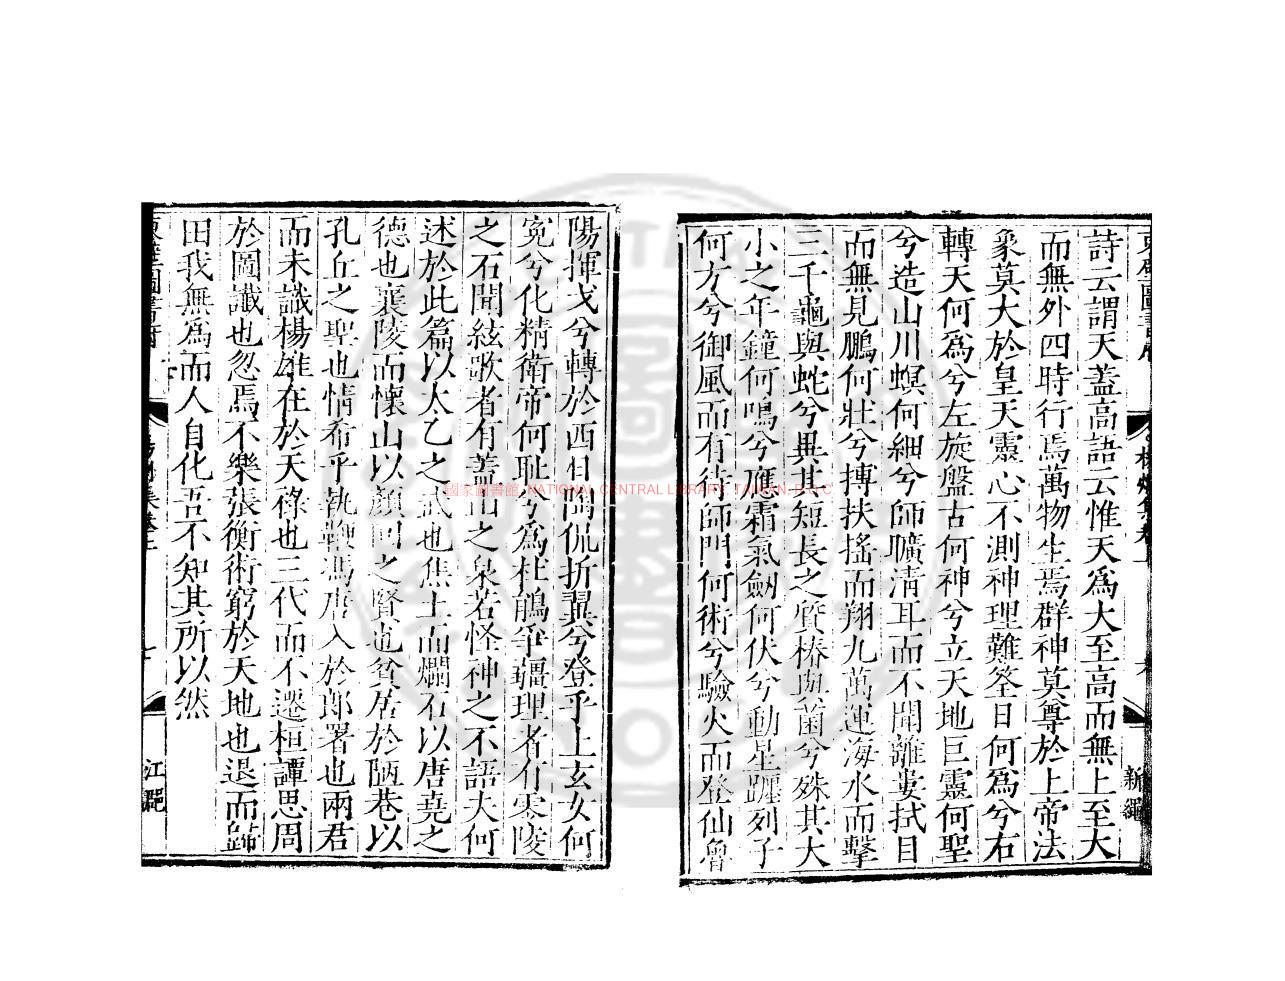 詩云謂天蓋高語云惟天爲大至高而無上至大
而無外四時行焉萬物生焉群神莫尊於上帝法
象莫大於皇天靈心不測神理難筌日何爲兮右
轉天何爲兮左旋盤古何神兮立天地巨靈何聖
兮造山川螟何細兮師曠清耳而不聞離婁拭目
而無見鵬何壯兮摶扶搖而翔九萬運海水而擊
三千龜與蛇兮異其短長之質椿與菌兮殊其大
小之年鐘何鳴兮應霜氣劒何伏兮動星躔列子
何方兮御風而有待師門何術兮驗火而登仙魯
陽揮戈兮轉於西日陶侃折翼兮登乎上玄女何
寃兮化精衛帝何耻兮爲杜鵑爭疆理者有零陵
之石聞絃歌者有蓋山之泉若怪神之不語夫何
述於此篇以太乙之武也焦土而爛石以唐堯之
德也襄陵而懷山以顏回之賢也貧居於陋巷以
孔丘之聖也情希乎執鞭馮唐入於郎署也兩君
而未識楊雄在於天祿也三代而不遷桓譚思周
於圖讖也忽焉不樂張衡術窮於天地也退而歸
田我無爲而人自化吾不知其所以然
江
國家圖書館 NATIONAL CENTRAL LIBRARY, TAIWAN, R.O.C